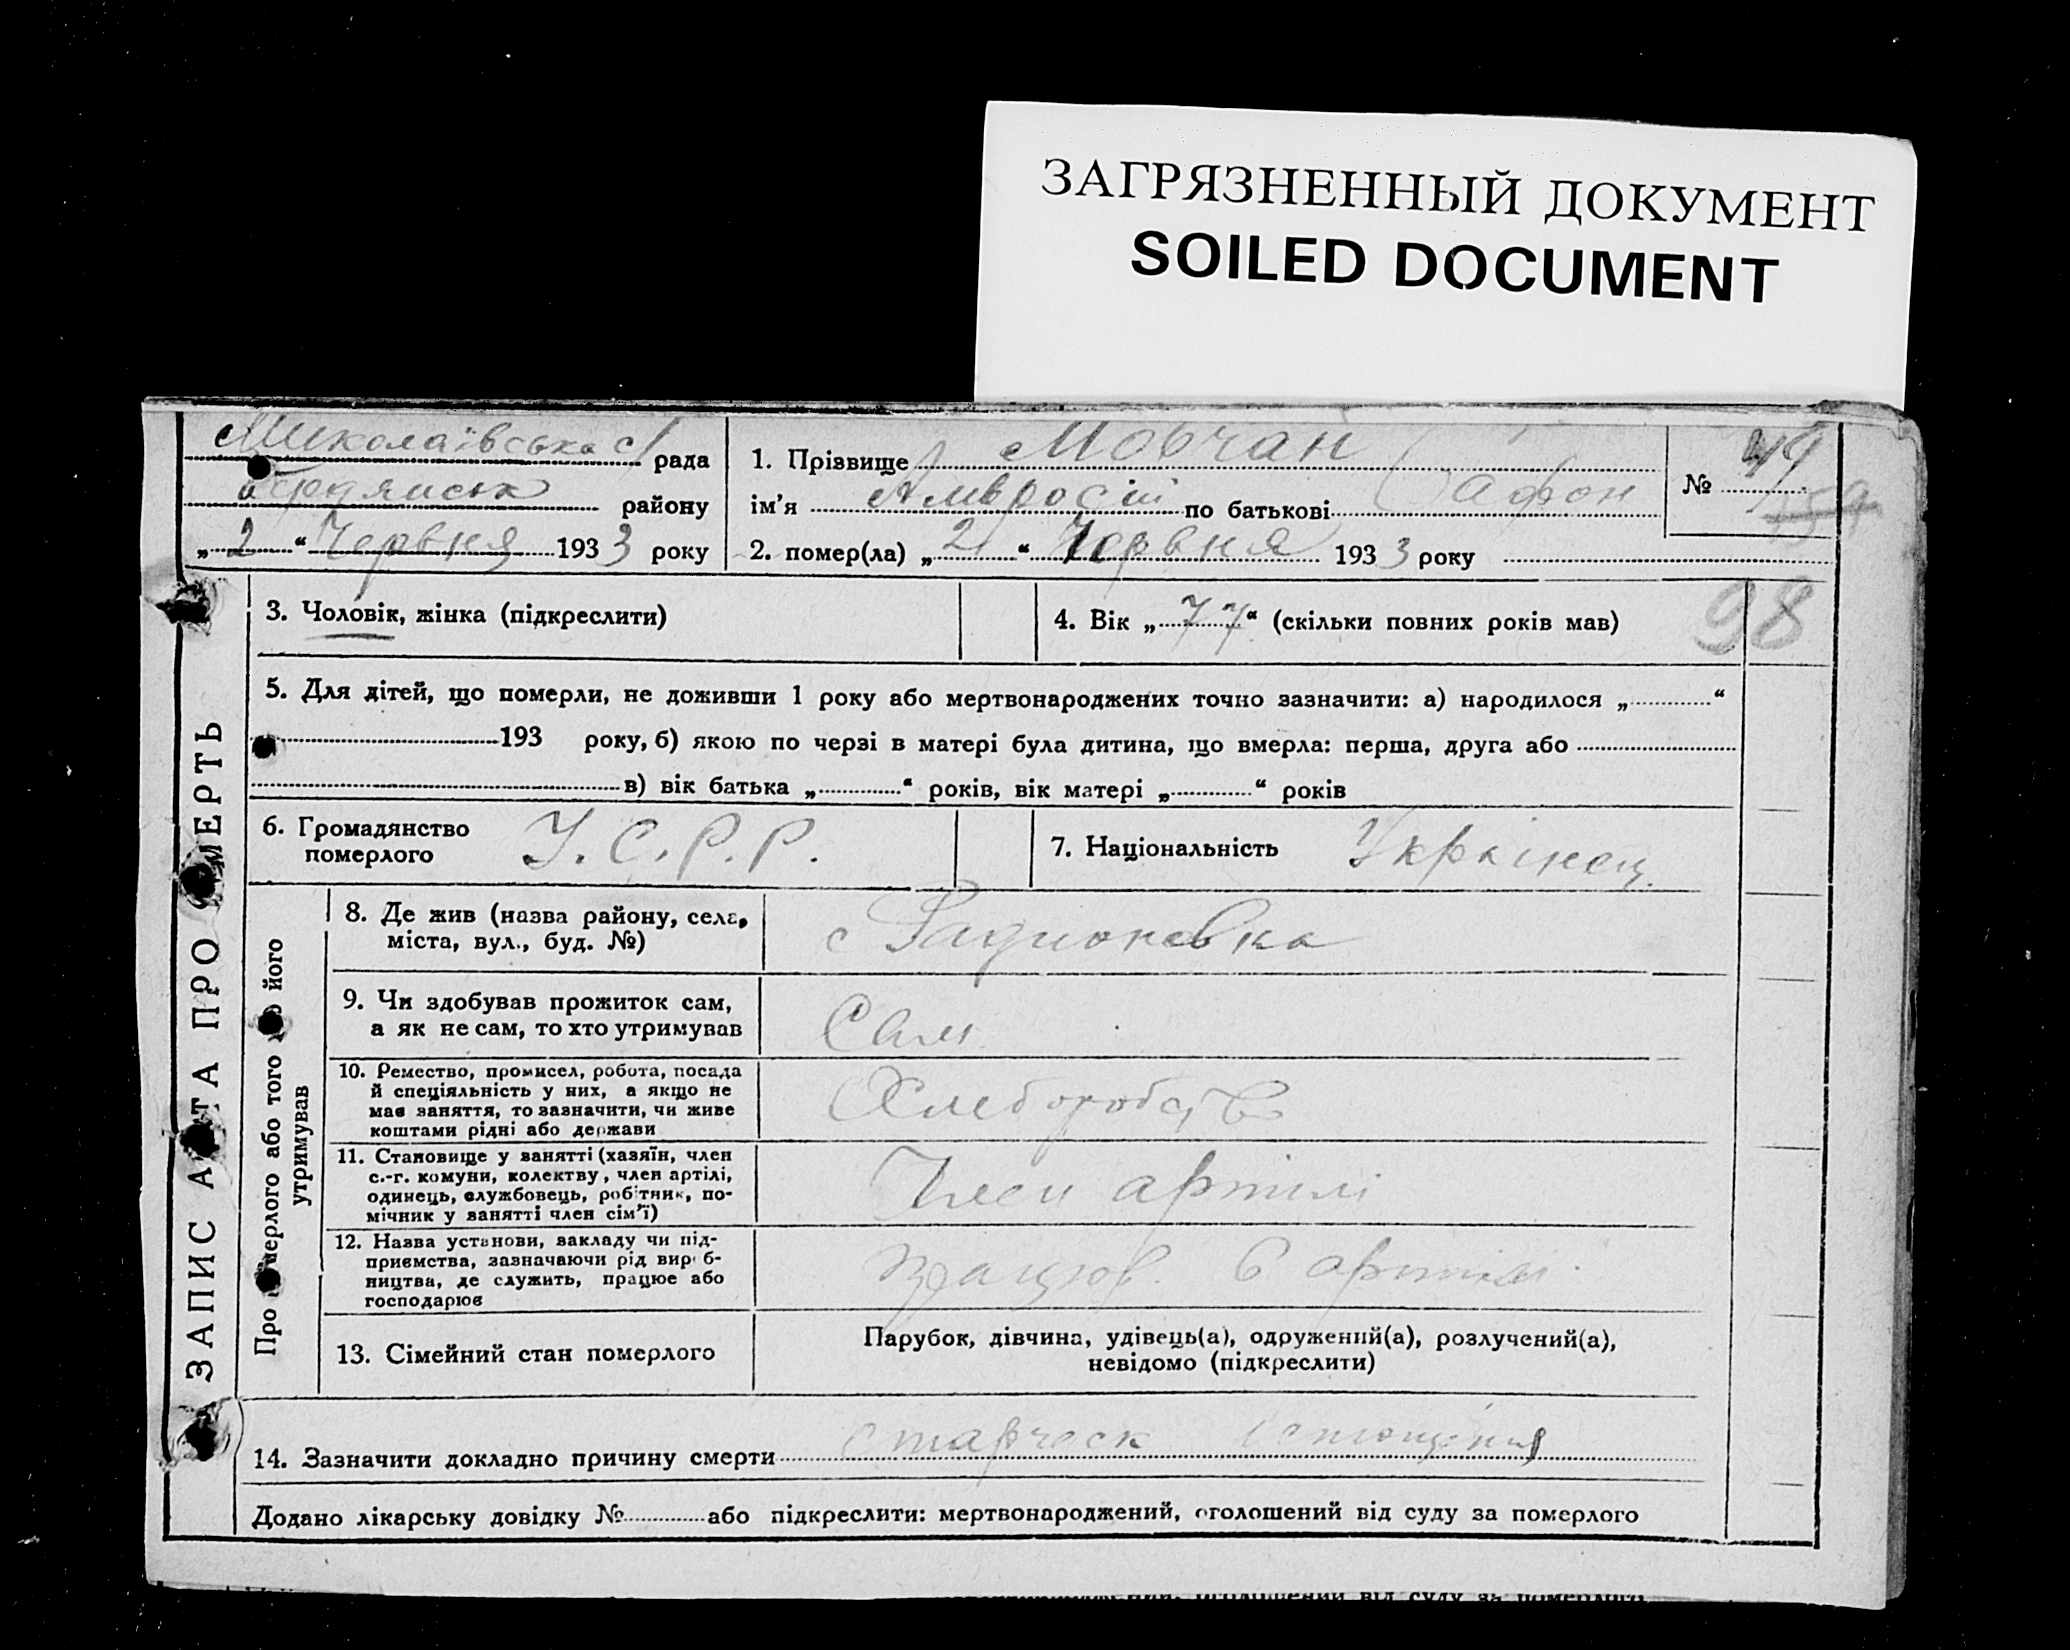 ЗАГРЯЗНЕННЫЙ ДОКУМЕНТ
SOILED DOCUMENT
Миколаївська с/ рада
Бердянськ району
„ 2 “ Червня 1933 року
1. Прізвище Мовчан
ім’я Амвросій по батькові Сафон
2. помер(ла) „ 2 “ Червня 1933 року
№ 49
98
ЗАПИС АКТА ПРО СМЕРТЬ
3. Чоловік, жінка (підкреслити)
4. Вік „ 77 “ (скільки повних років мав)
5. Для дітей, що померли, не доживши 1 року або мертвонароджених точно зазначити: а) народилося „ “
193 року, б) якою по черзі в матері була дитина, що вмерла: перша, друга або
в) вік батька „ “ років, вік матері „ “ років
6. Громадянство
померлого
У.С.Р.Р.
7. Національність Українец
Про померлого або того хто його
утримував
8. Де жив (назва району, села,
міста, вул., буд. №)
с Радионовка
9. Чи здобував прожиток сам,
а як не сам, то хто утримував
Сам
10. Ремество, промисел, робота, посада
й спеціяльність у них, а якщо не
мав заняття, то зазначити, чи живе
коштами рідні або держави
Хлеборобств
11. Становище у занятті (хазяїн, член
с.-г. комуни, колектву, член артілі,
одинець, службовець, робітник, по-
мічник у занятті член сім’ї)
Член артілі
12. Назва установи, закладу чи під-
приємства, зазначаючи рід вироб-
ництва, де служить, працює або
господарює
працюв. в артілі
13. Сімейний стан померлого
Парубок, дівчина, удівець(а), одружений(а), розлучений(а),
невідомо (підкреслити)
14. Зазначити докладно причину смерти старческ истощения
Додано лікарську довідку № або підкреслити: мертвонароджений, оголошений від суду за померлого